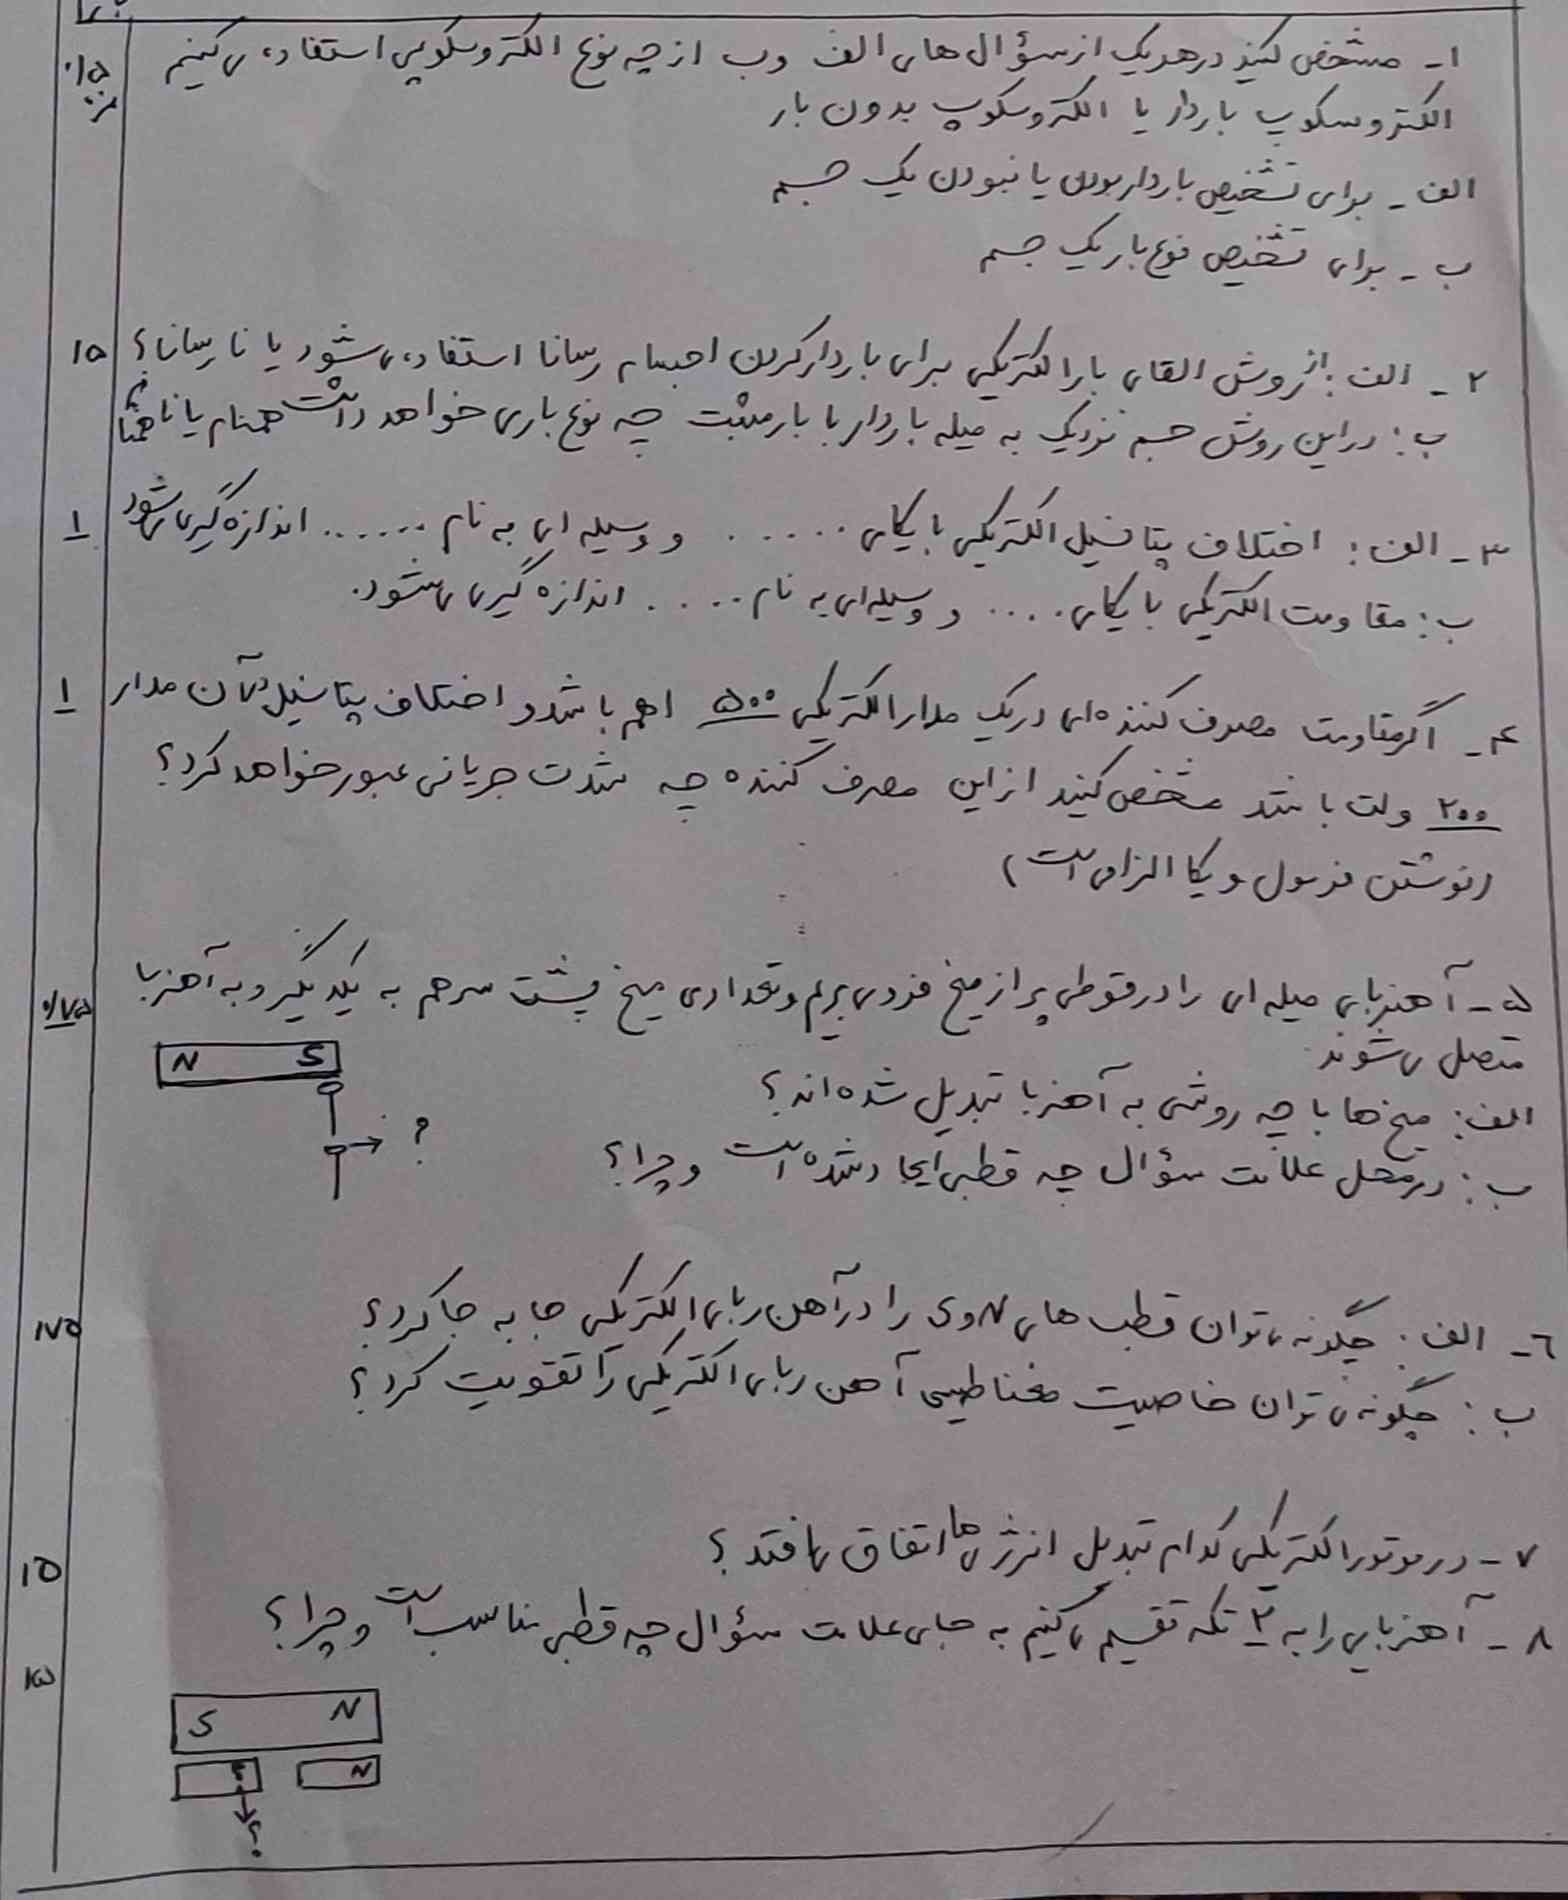 ۱- مشخص کنید در هر یک از سؤال های الف و ب از چه نوع الکتروسکوپی استفاده می کنیم
۰/۵
الکتروسکوپ باردار یا الکتروسکوپ بدون بار
الف - برای تشخیص باردار بودن یا نبودن یک جسم
ب - برای تشخیص نوع بار یک جسم
۲- الف: از روش القای بار الکتریکی برای باردار کردن اجسام رسانا استفاده می شود یا نا رسانا؟
۱۵
ب: در این روش جسم نزدیک به میله باردار با بار مثبت چه نوع باری خواهد داشت همنام یا نا همنام
۳- الف: اختلاف پتانسیل الکتریکی با یکای ...... و وسیله ای به نام ...... اندازه گیری می شود
۱
ب: مقاومت الکتریکی با یکای .... و وسیله ای به نام ..... اندازه گیری می شود.
۴- اگر مقاومت مصرف کننده ای در یک مدار الکتریکی ۵۰۰ اهم باشد و اختلاف پتانسیل در آن مدار
۱
۲۰۰ ولت باشد مشخص کنید از این مصرف کننده چه شدت جریانی عبور خواهد کرد؟
(نوشتن فرمول و یکا الزامی است)
۵- آهنربای میله ای را در قوطی پر از میخ فرو می بریم و تعدادی میخ پشت سر هم به یکدیگر و به آهنربا
۰/۷۵
متصل می شوند
N S
الف: میخ ها با چه روشی به آهنربا تبدیل شده اند؟
؟
ب: در محل علامت سؤال چه قطبی ایجاد شده است و چرا؟
۶- الف: چگونه می توان قطب های N و S را در آهن ربای الکتریکی جا به جا کرد؟
۱۷۵
ب: چگونه می توان خاصیت مغناطیسی آهن ربای الکتریکی را تقویت کرد؟
۷- در موتور الکتریکی کدام تبدیل انرژی ها اتفاق می افتد؟
۱۵
۸- آهنربایی را به ۲ تکه تقسیم می کنیم به جای علامت سؤال چه قطبی مناسب است و چرا؟
۱۵
S N
N
؟